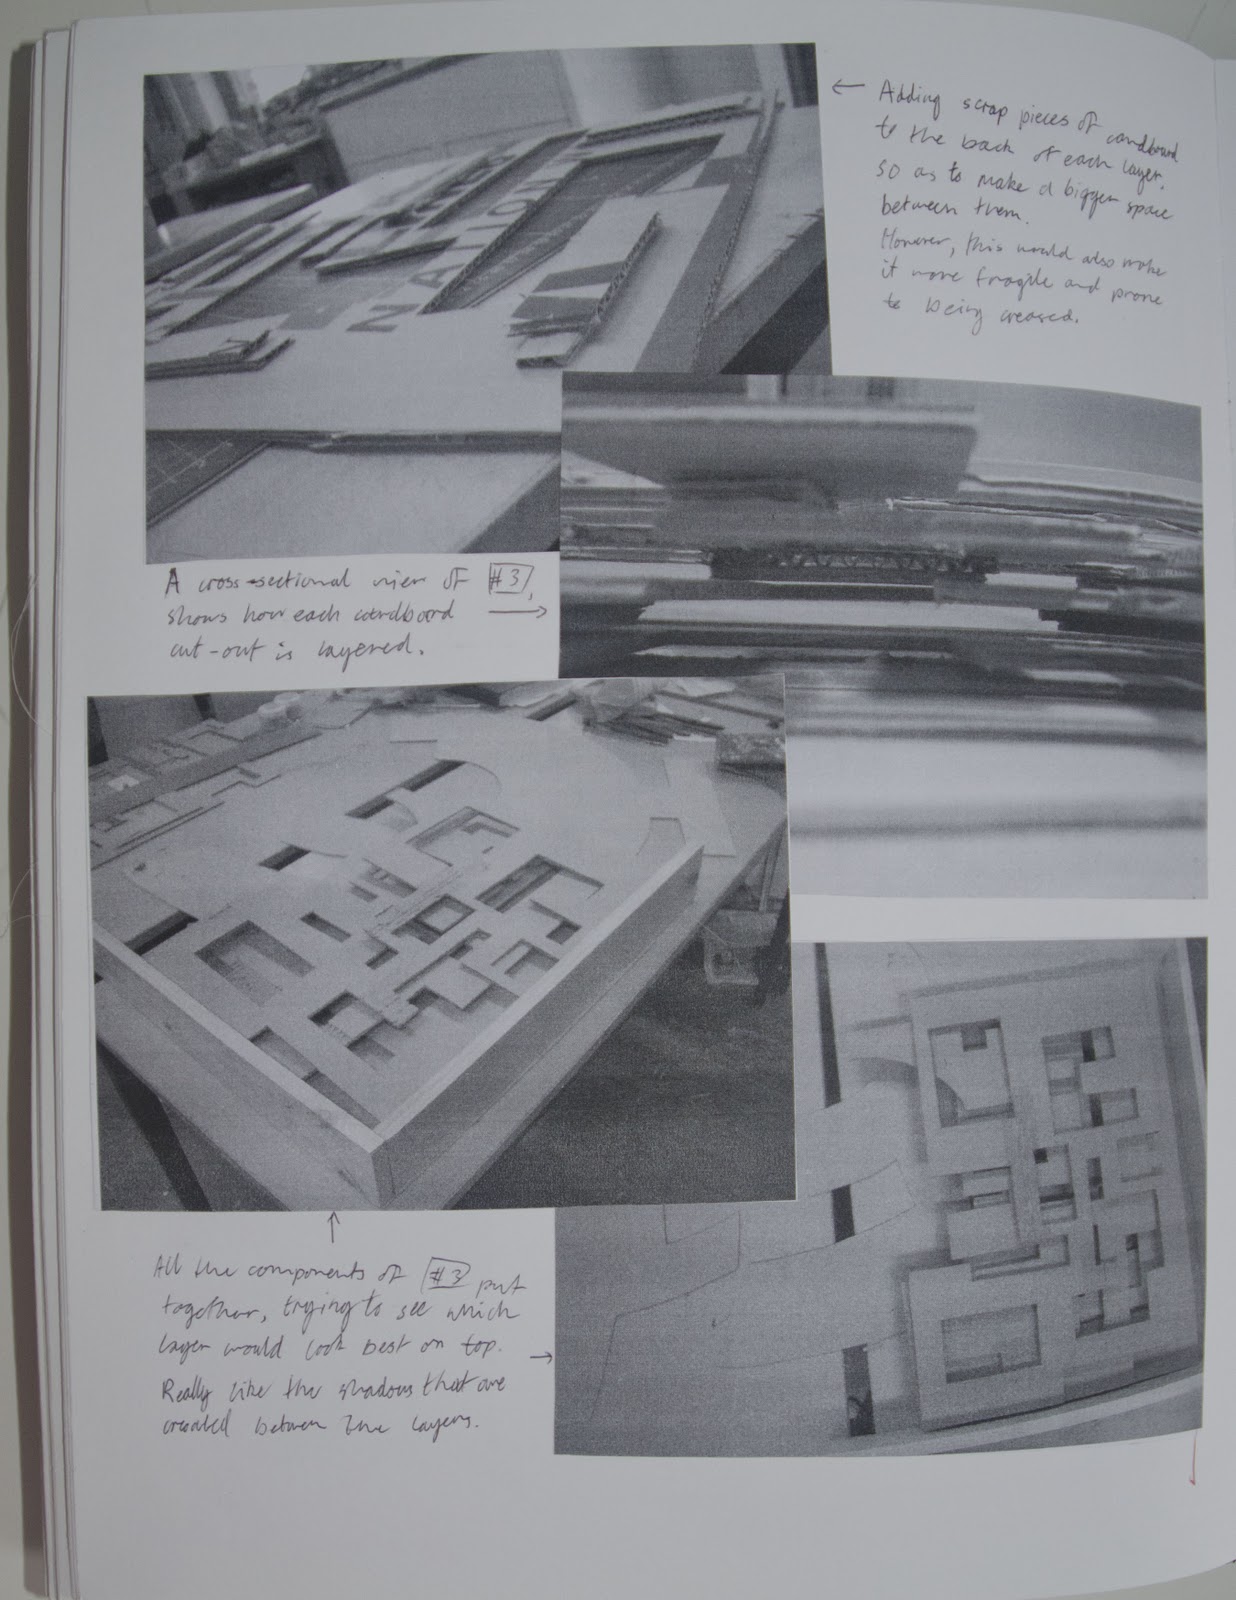 ← Adding scrap pieces of cardboard
to the back of each layer,
so as to make a bigger space
between them.
However, this would also make
it more fragile and prone
to being creased.
NATION
A cross-sectional view of #3,
shows how each cardboard →
cut-out is layered.
↑
All the components of #3 put
together, trying to see which
layer would look best on top. →
Really like the shadows that are
created between the layers.